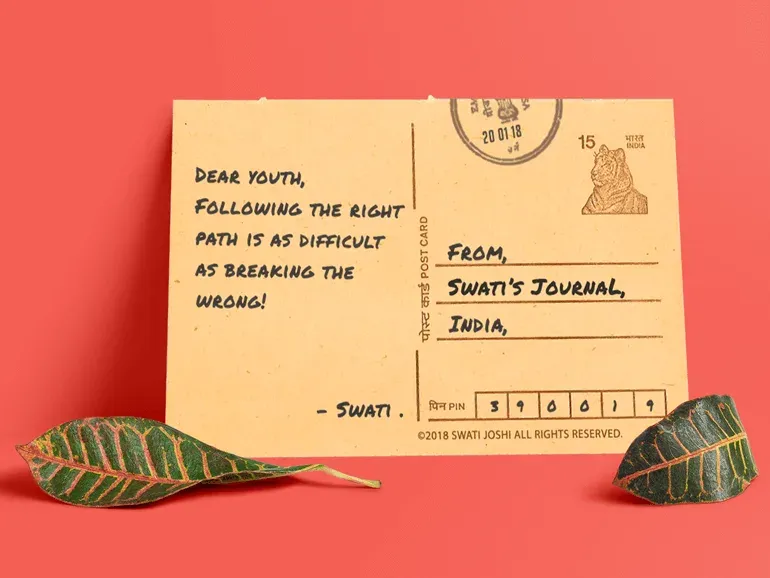 DEAR YOUTH,
FOLLOWING THE RIGHT
PATH IS AS DIFFICULT
AS BREAKING THE
WRONG!
- SWATI .
20 01 18
15 भारत
INDIA
पोस्ट कार्ड POST CARD
FROM,
SWATI'S JOURNAL,
INDIA,
पिन PIN 3 9 0 0 1 9
©2018 SWATI JOSHI ALL RIGHTS RESERVED.